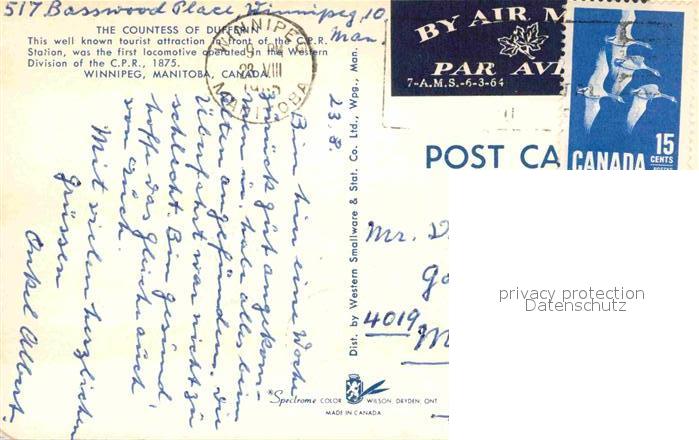 517 Basswood Place, Winnipeg, 10,
Man.
THE COUNTESS OF DUFFERIN
This well known tourist attraction in front of the C.P.R.
Station, was the first locomotive operated in the Western
Division of the C.P.R., 1875.
WINNIPEG, MANITOBA, CANADA.
WINNIPEG
VIII
MANITOBA
BY AIR M
PAR AVI
7-A.M.S.-6-3-64
15
CENTS
CANADA
POSTES
POST CA
23. 8.
Bin hier eine Woche
zurück gut angekom-
men u. habe alles beim
alten angefunden. Die
Überfahrt war nicht zu
schlecht. Bin gesund
hoffe das gleiche auch
von euch.
Mit vielen herzlichen
Grüssen
Onkel Albert.
Dist. by Western Smallware & Stat. Co. Ltd., Wpg., Man.
Mr.
4019
Spectrome COLOR WILSON, DRYDEN, ONT
MADE IN CANADA
privacy protection
Datenschutz